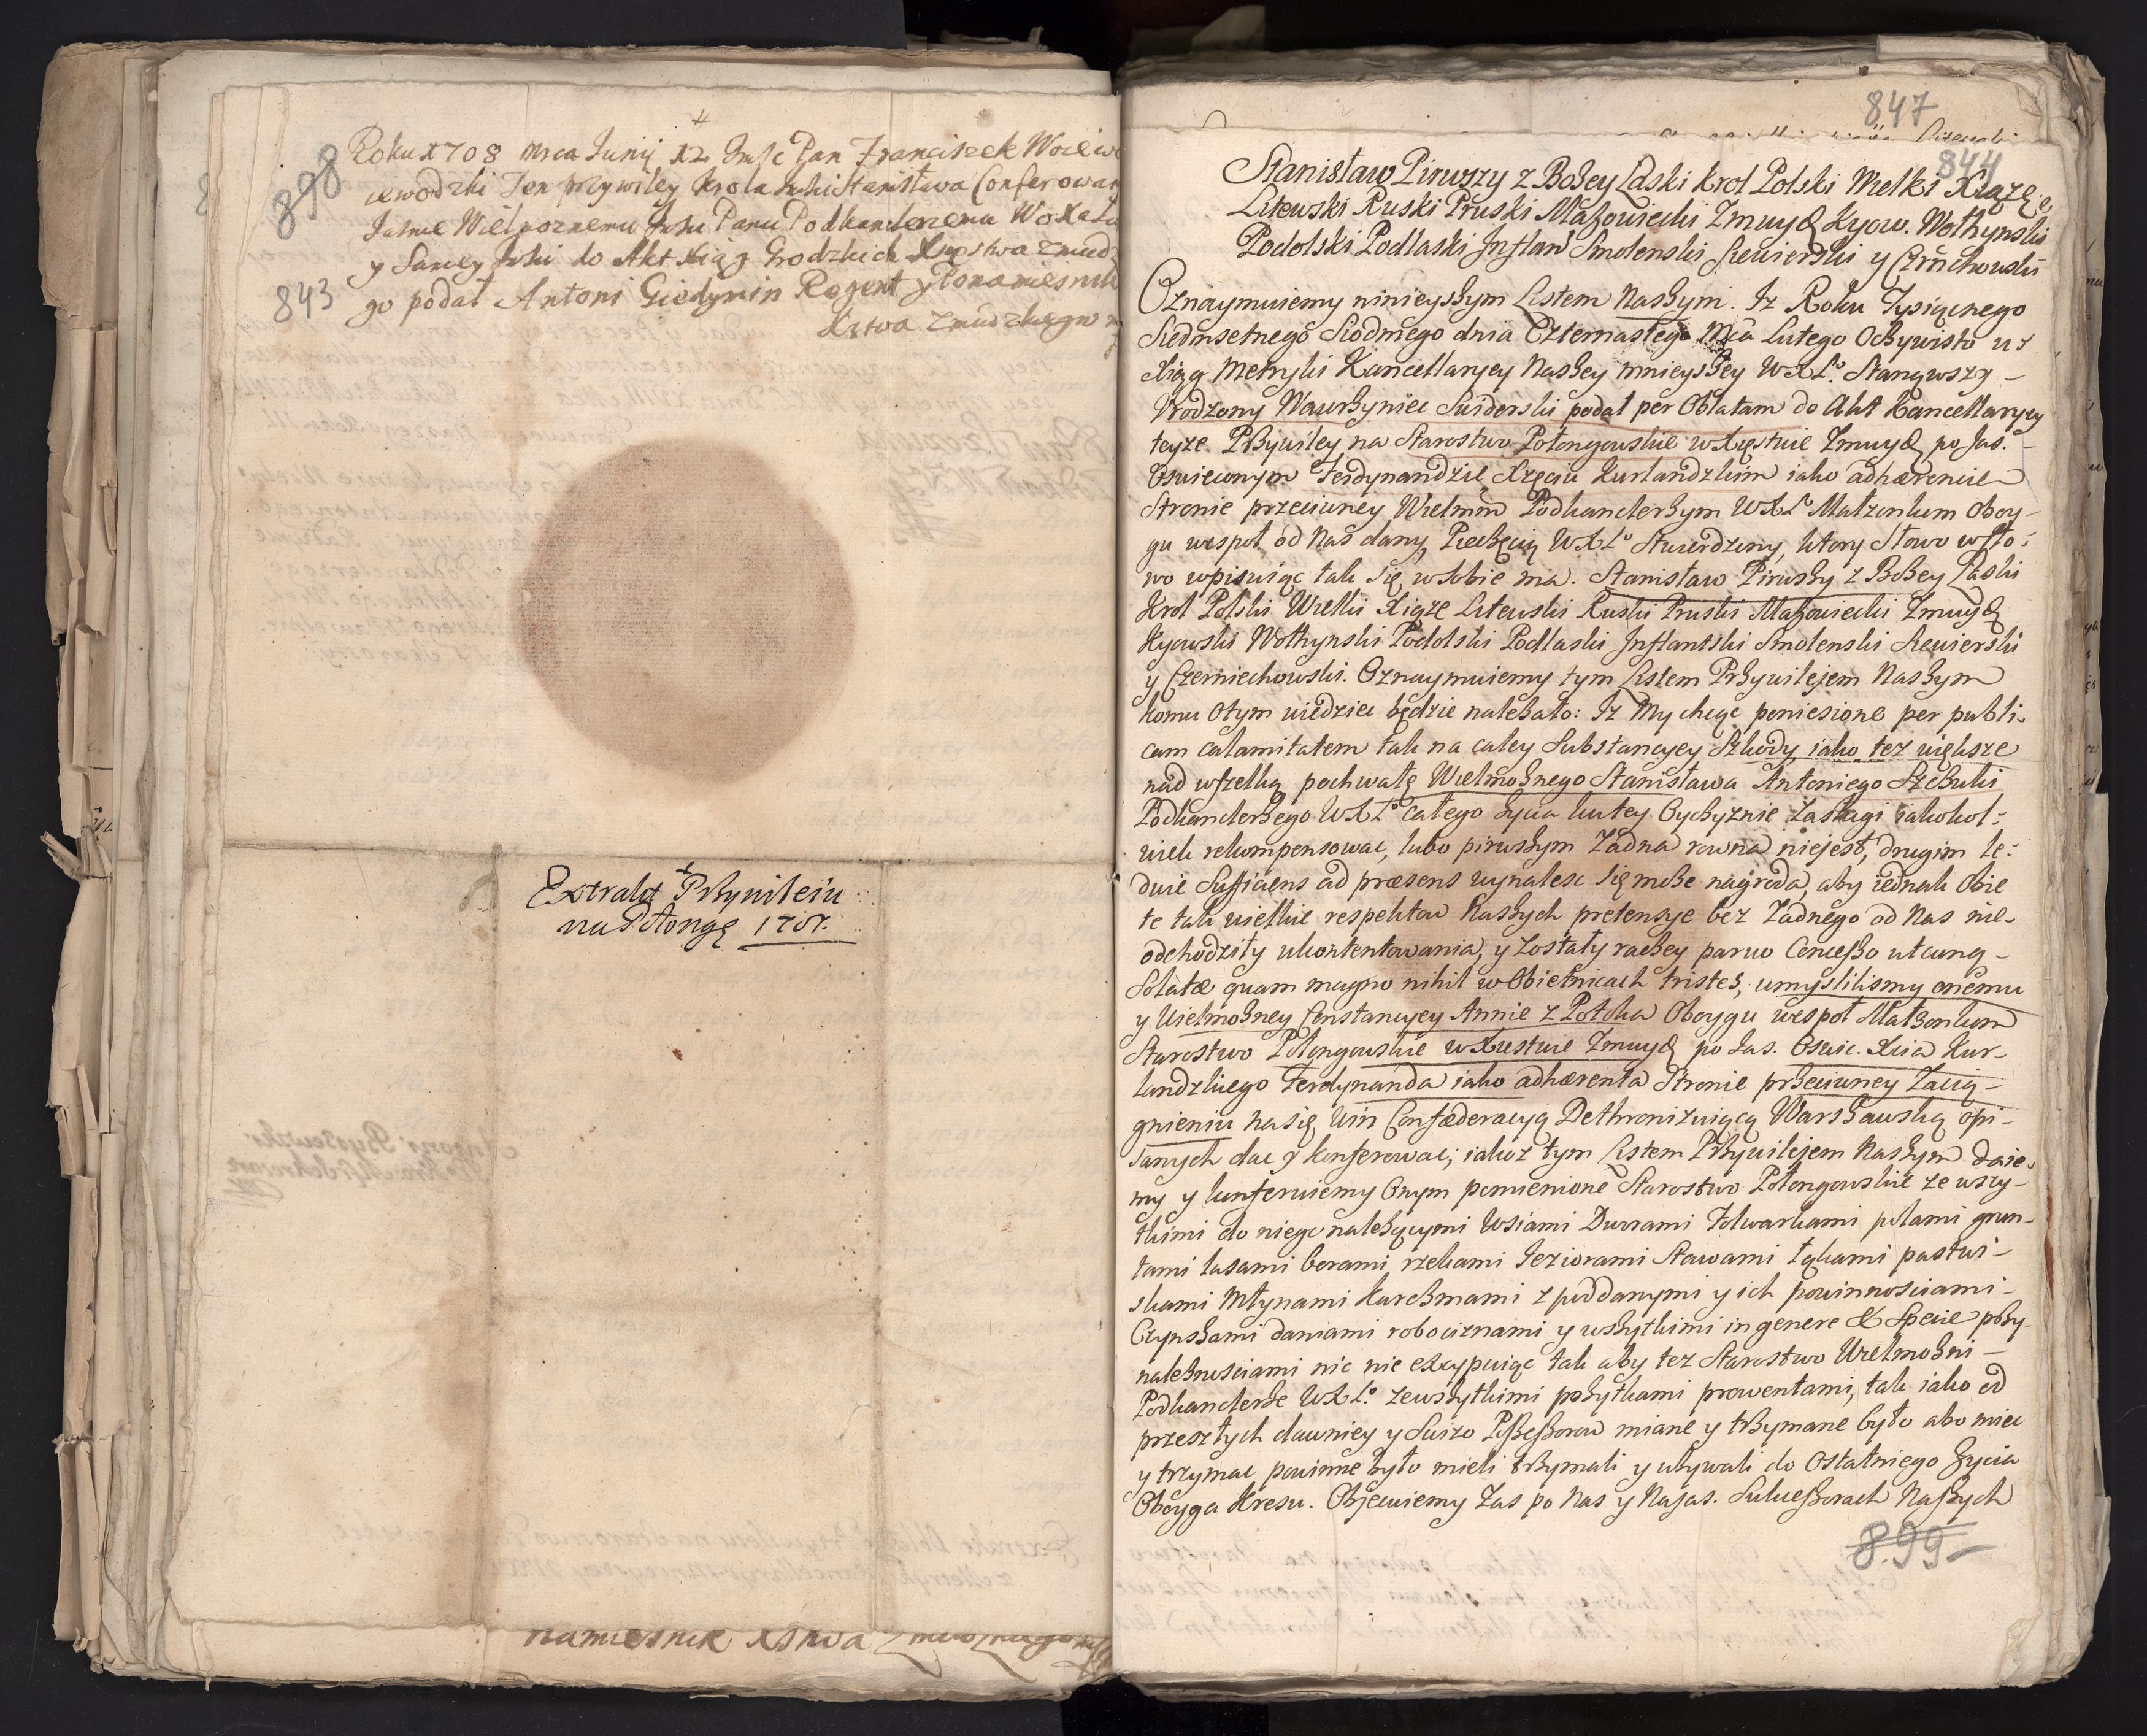 Roku 1708 mca Junij 12 Jmsc Pan Franciszek Woiew
iewodzki Ten przywiley Krola Jmsci Stanisława Conferowan
Jasnie Wielmoznemu Panu Podkanclerzemu WoXa
y Samey do Akt Xiąg Grodzkich Xięstwa Zmudz
go podał Antoni Giedymin Regent y Ponamiesnik
Xstwa Zmudzkiego
898
843
Extrakt Przywileiu
na Połongę 1707.
Namiesnik Xstwa Zmudzkiego
847
844
Stanisław Pirwszy z Bożey Łaski Krol Polski Wielki Xiąże
Litewski Ruski Pruski Mazowiecki Zmuydz Kyow. Wołhynski
Podolski Podlaski Inflan Smolenski Siewierski y Czernichowski
Oznaymuiemy ninieyszym Listem naszym. Iz Roku Tysiącnego
Siedmsetnego Siodmego dnia Czternastego Mca Lutego Oczywisto u
Xiąg Metryki Kancellaryey Naszey mnieyszey WXLo. Stanąwszy
Vrodzony Wawrzyniec Suiderski podał per Oblatam do Akt Kancellaryey
teyze Przywiley na Starostwo Połongowskie w Xięstwie Zmuydz po Jas.
Oswieconym Ferdynandzie Xzęciu Kurlandzkim iako adhærencie
Stronie przeciwney Wielmm Podkanclerzym WXLo Małzonkom oboy-
gu wespoł od Nas dany, Pieczęcią WXLo Stwierdzony, ktory Słowo w sło-
wo wpisuiąc tak się w sobie ma. Stanisław Pirwszy z Bożey Łaski
Krol Polski Wielki Xiąze Litewski Ruski Pruski Mazowiecki Zmuydz
Kyowski Wołhynski Podolski Podlaski Inflantski Smolenski Siewierski
y Czerniechowski. Oznaymuiemy tym Listem Przywilejem Naszym
komu o tym wiedziec będzie należało: Iz My chcąc poniesione per publi-
cam calamitatem tak na całey Substancyey Szkody, iako tez większe
nad wszelką pochwałę Wielmożnego Stanisława Antoniego Szczuki
Podkanclerzego WXLo całego życia ku tey Oyczyznie Zasługi iakokol-
wiek rekompensowac, lubo pirwszym Zadna rowna nie jest, drugim le-
dwie Sufficiens ad præsens wynalesc się może nagroda, aby iednak obie
te tak wielkie respektow Naszych pretensye bez Zadnego od Nas nie-
odchodziły ukontentowania, y zostały raczey parvo Concesso utcunq-
Solatæ quam magno nihil w Obietnicach tristes, umyslilismy onemu
y Wielmożney Constancyey Annie z Potoka Oboygu wespoł Małżonkom
Starostwo Połongowskie w Xiestwie Zmuydz po Jas. Oswie. Xcia Kur-
landzkiego Ferdynanda iako adhærenta Stronie przeciwney Zacią-
gnieniu na się win Confæderacyą Dethronizuiącą Warszawską opi-
sanych dac y konferowac; iakoz tym Listem Przywilejem Naszym daie-
my y konferuiemy Onym pomienione Starostwo Połongowskie ze wszy-
tkimi do niego należącymi wsiami Dworami Folwarkami polami grun-
tami lasami borami rzekami Jeziorami Stawami łąkami pastwi-
skami Młynami Karczmami z poddanymi y ich powinnosciami
Czynszami daniami robociznami y wszytkimi in genere & Specie przy-
należnosciami nic nie excypuiąc tak aby tez Starostwo Wielmożni
Podkanclerze WXLo. ze wszytkimi pożytkami prowentami, tak iako od
przeszłych dawniey y Swiżo Possessorow miane y trzymane było abo miec
y trzymac powinne było mieli trzymali y używali do ostatniego życia
Oboyga Kresu. Obiecuiemy Zas po Nas y Najas. Sukcessorach Naszych
899